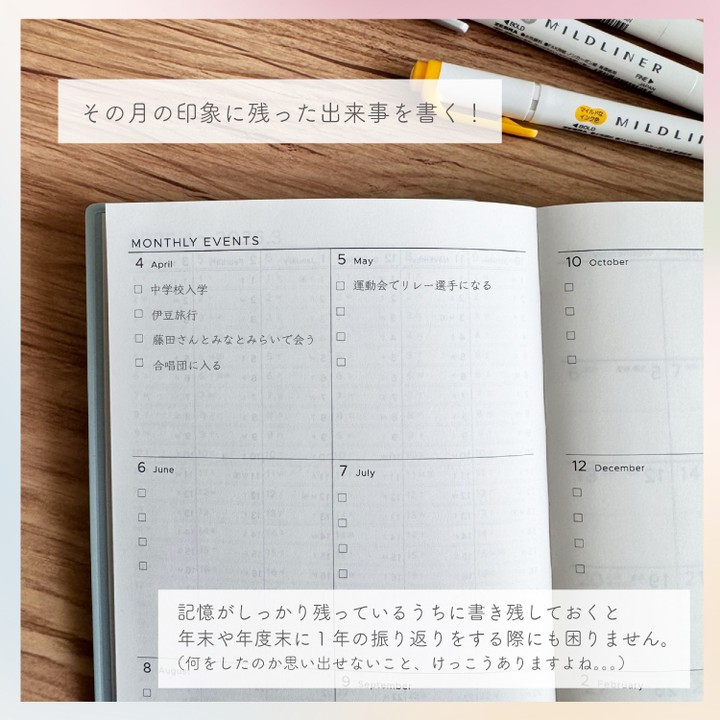 BOLD
MILDLINER
FINE
その月の印象に残った出来事を書く！
マイルドな
インク色
BOLD
MILDLIN
MONTHLY EVENTS
4 April
□ 中学校入学
□ 伊豆旅行
□ 藤田さんとみなとみらいで会う
□ 合唱団に入る
5 May
□ 運動会でリレー選手になる
□
□
□
10 October
□
□
□
□
6 June
□
□
□
□
7 July
□
□
□
□
12 December
□
□
□
□
記憶がしっかり残っているうちに書き残しておくと
年末や年度末に１年の振り返りをする際にも困りません。
（何をしたのか思い出せないこと、けっこうありますよね。。。）
8 August
□
9 September
2 February